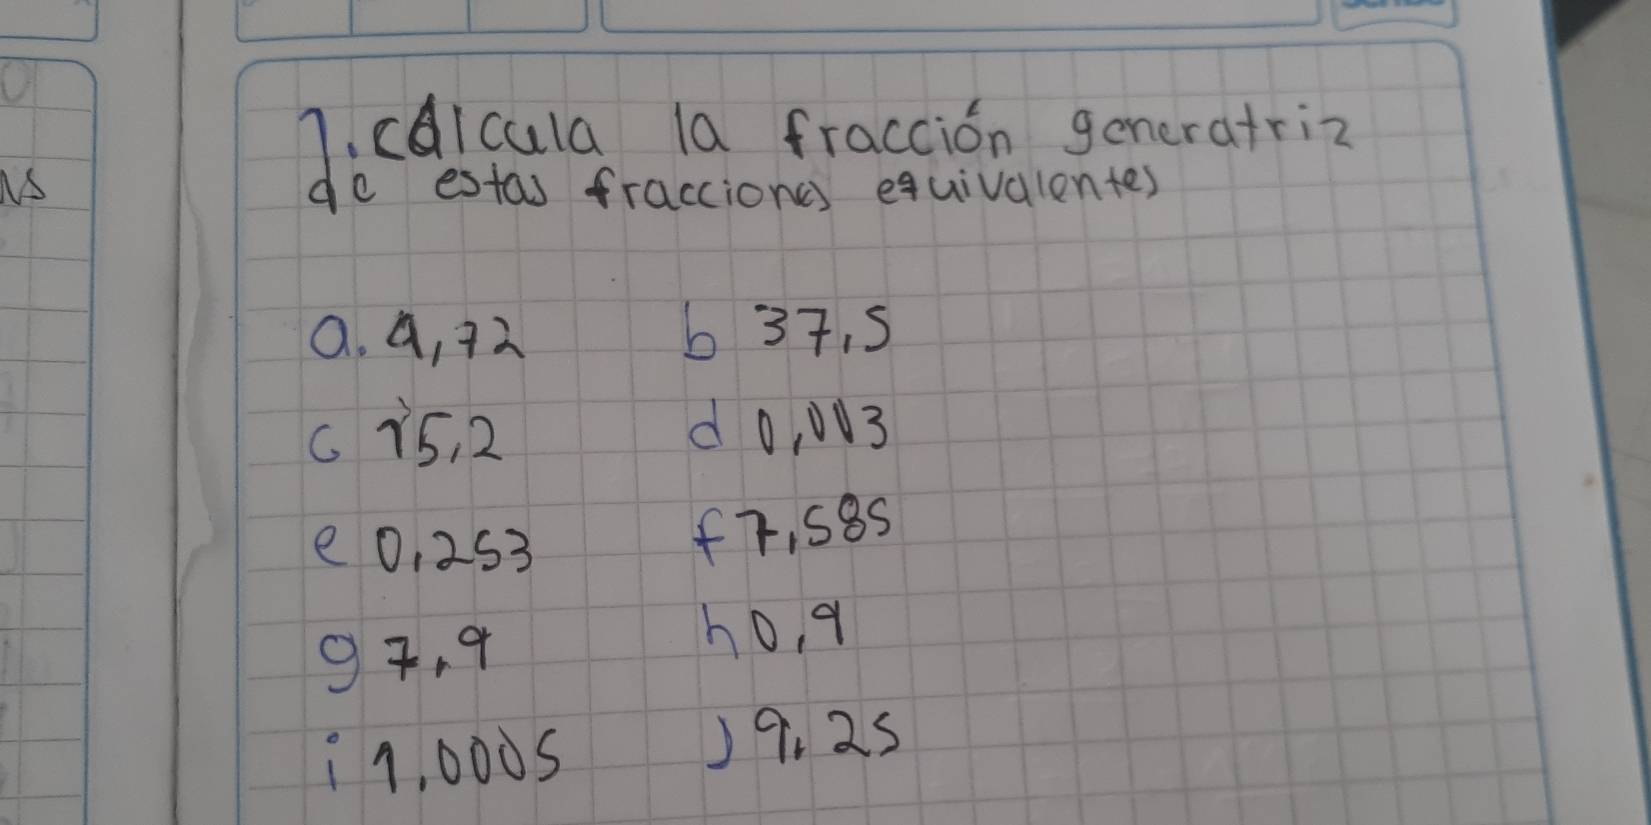 1. calcula la fracción generatriz
de estas fracciones equivalentes
a. 4,72 b 37,5
c 15,2 d 0,003
e 0,253 f 7,585
g 7,9 h 0,9
i 1,0005 j 9,25